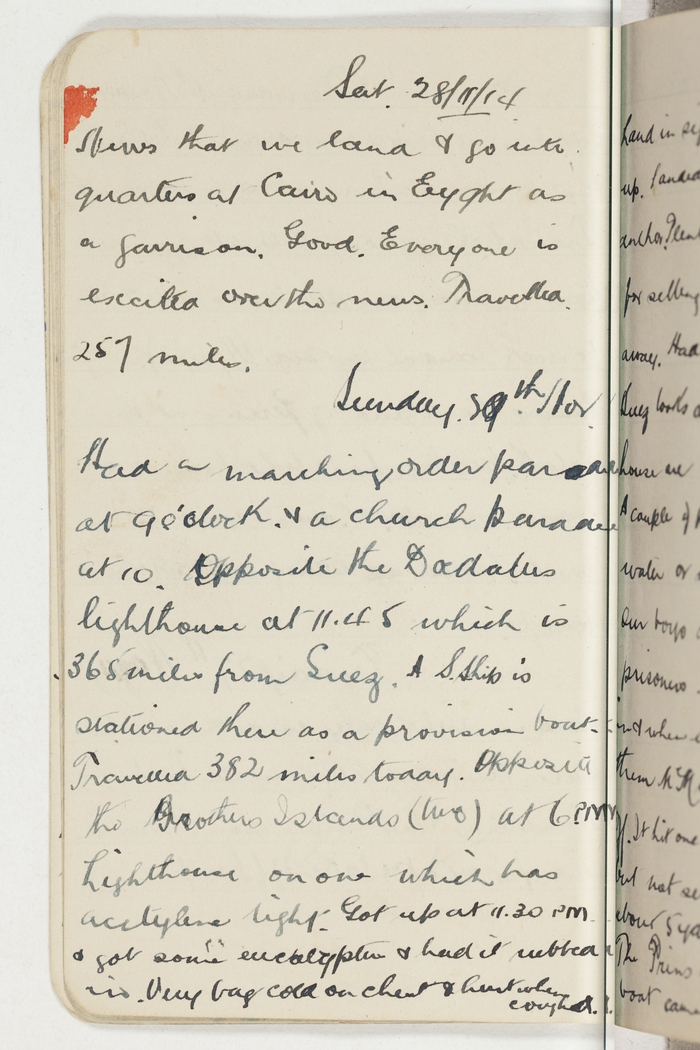 Sat. 28/11/14
News that we land & go into
quarters at Cairo in Eyght as
a garrison. Good. Everyone is
excited over the news. Travelled
257 miles.
Sunday. 29th Nov
Had a marching order parade
at 9 o'clock. & a church parade
at 10. Opposite the Dadalus
lighthouse at 11.45 which is
365 miles from Suez. A S.Ship is
stationed there as a provision boat.
Travelled 382 miles today. Opposite
the Brothers Islands (two) at 6 PM
Lighthouse on one which has
acetylene light. Got up at 11.30 PM
& got some eucalyptus & had it rubbed
in. Very bag cold on chest & hurt when
coughed.
hand in
up. Landed
anchor.
for selling
away. Had
Suez looks
house are
A couple of
water or
our boys
prisoners.
& when
them
ff. It hit one
but not
about 5 yd
The Prins
boat came